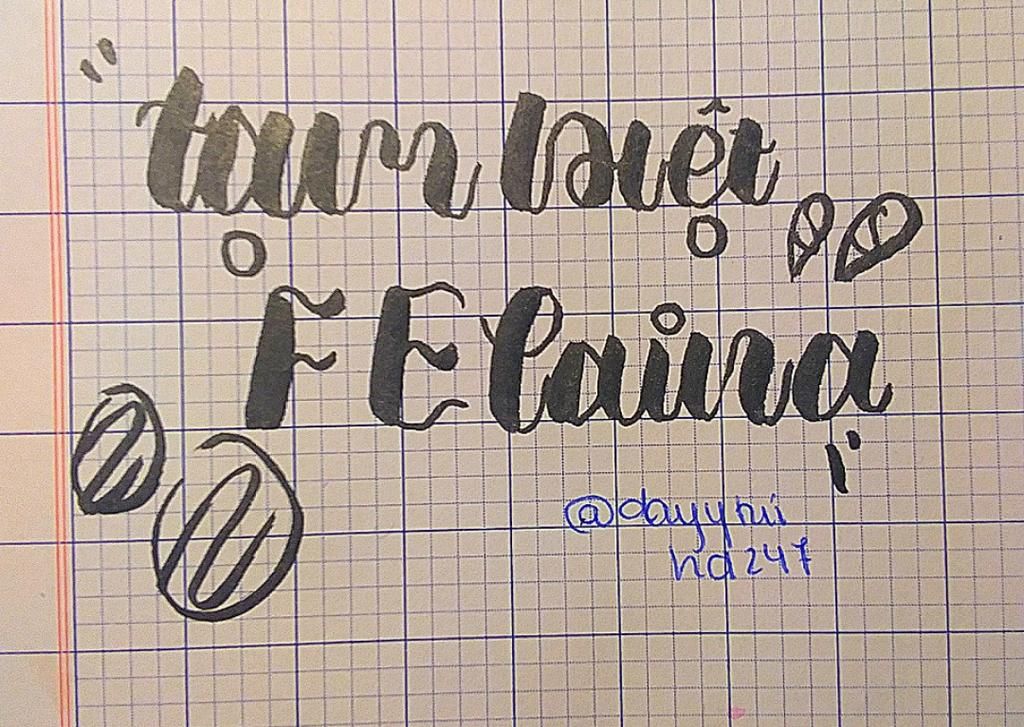 "tạm biệt
FE Laina"
@dayyhui
hd247